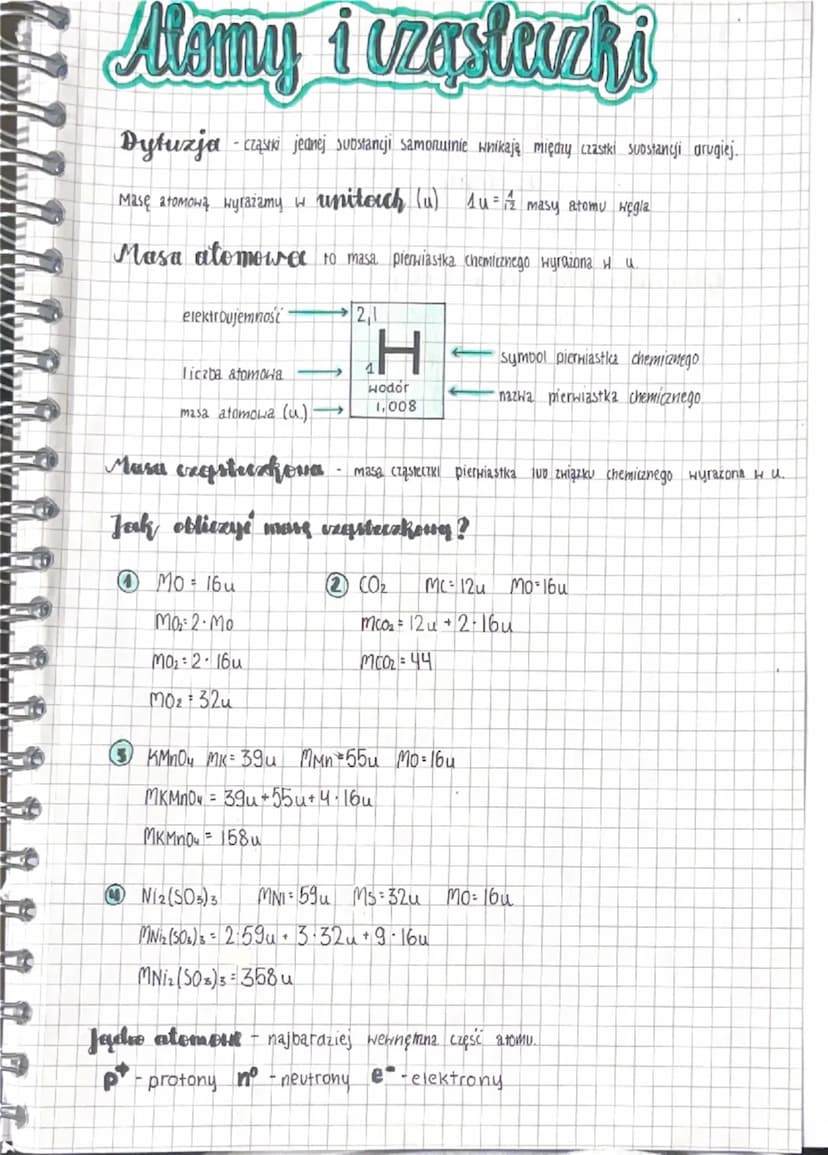 Atomy i cząsteczki
Dyfuzja - cząstki jednej substancji samorzutnie wnikają między cząstki substancji drugiej.
Masę atomową wyrażamy w unitach (u) 1u = 1/12 masy atomu węgla
Masa atomowa to masa pierwiastka chemicznego wyrażona w u.
elektroujemność
2,1
H
symbol pierwiastka chemicznego
liczba atomowa
1
wodór
nazwa pierwiastka chemicznego
masa atomowa (u)
1,008
Masa cząsteczkowa - masa cząsteczki pierwiastka lub związku chemicznego wyrażona w u.
Jak obliczyć masę cząsteczkową?
1 MO = 16u
2 CO₂ MC = 12u MO = 16u
MO₂ = 2 · MO
mCO₂ = 12u + 2 · 16u
MO₂ = 2 · 16u
MCO₂ = 44
MO₂ = 32u
3 KMnO₄ MK = 39u MMn = 55u MO = 16u
MKMnO₄ = 39u + 55u + 4 · 16u
MKMnO₄ = 158u
4 Ni₂(SO₃)₃ MNi = 59u MS = 32u MO = 16u
MNi₂(SO₃)₃ = 2·59u + 3·32u + 9·16u
MNi₂(SO₃)₃ = 358u
Jądro atomowe - najbardziej wewnętrzna część atomu.
p⁺ - protony n⁰ - neutrony e⁻ - elektrony